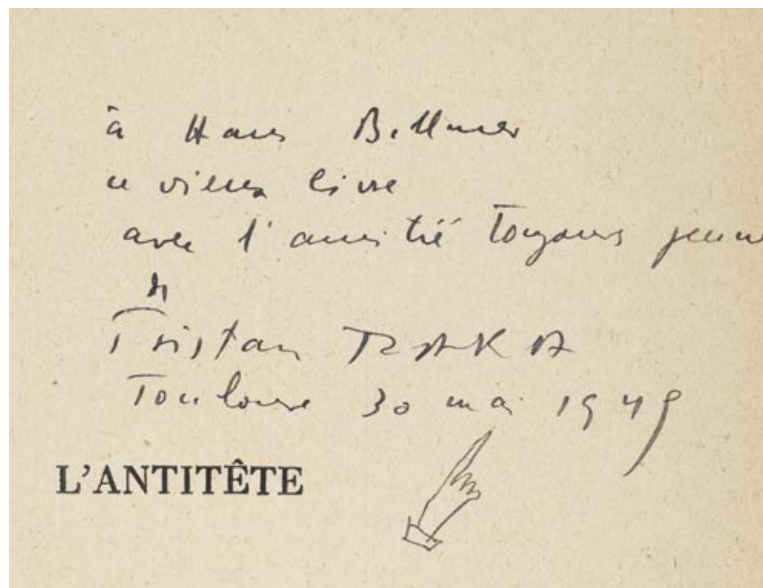 à Hans Bellmer
ce vieux livre
avec l'amitié toujours jeune
de
Tristan TZARA
Toulouse 30 mai 1949
L'ANTITÊTE